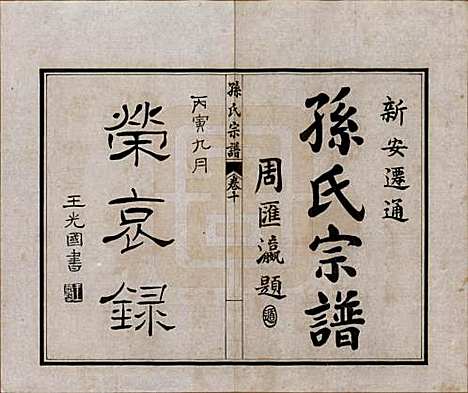 新安遷通
孫氏宗譜
周匯瀛題
孫氏宗譜
卷十
丙寅九月
榮哀録
王光國書